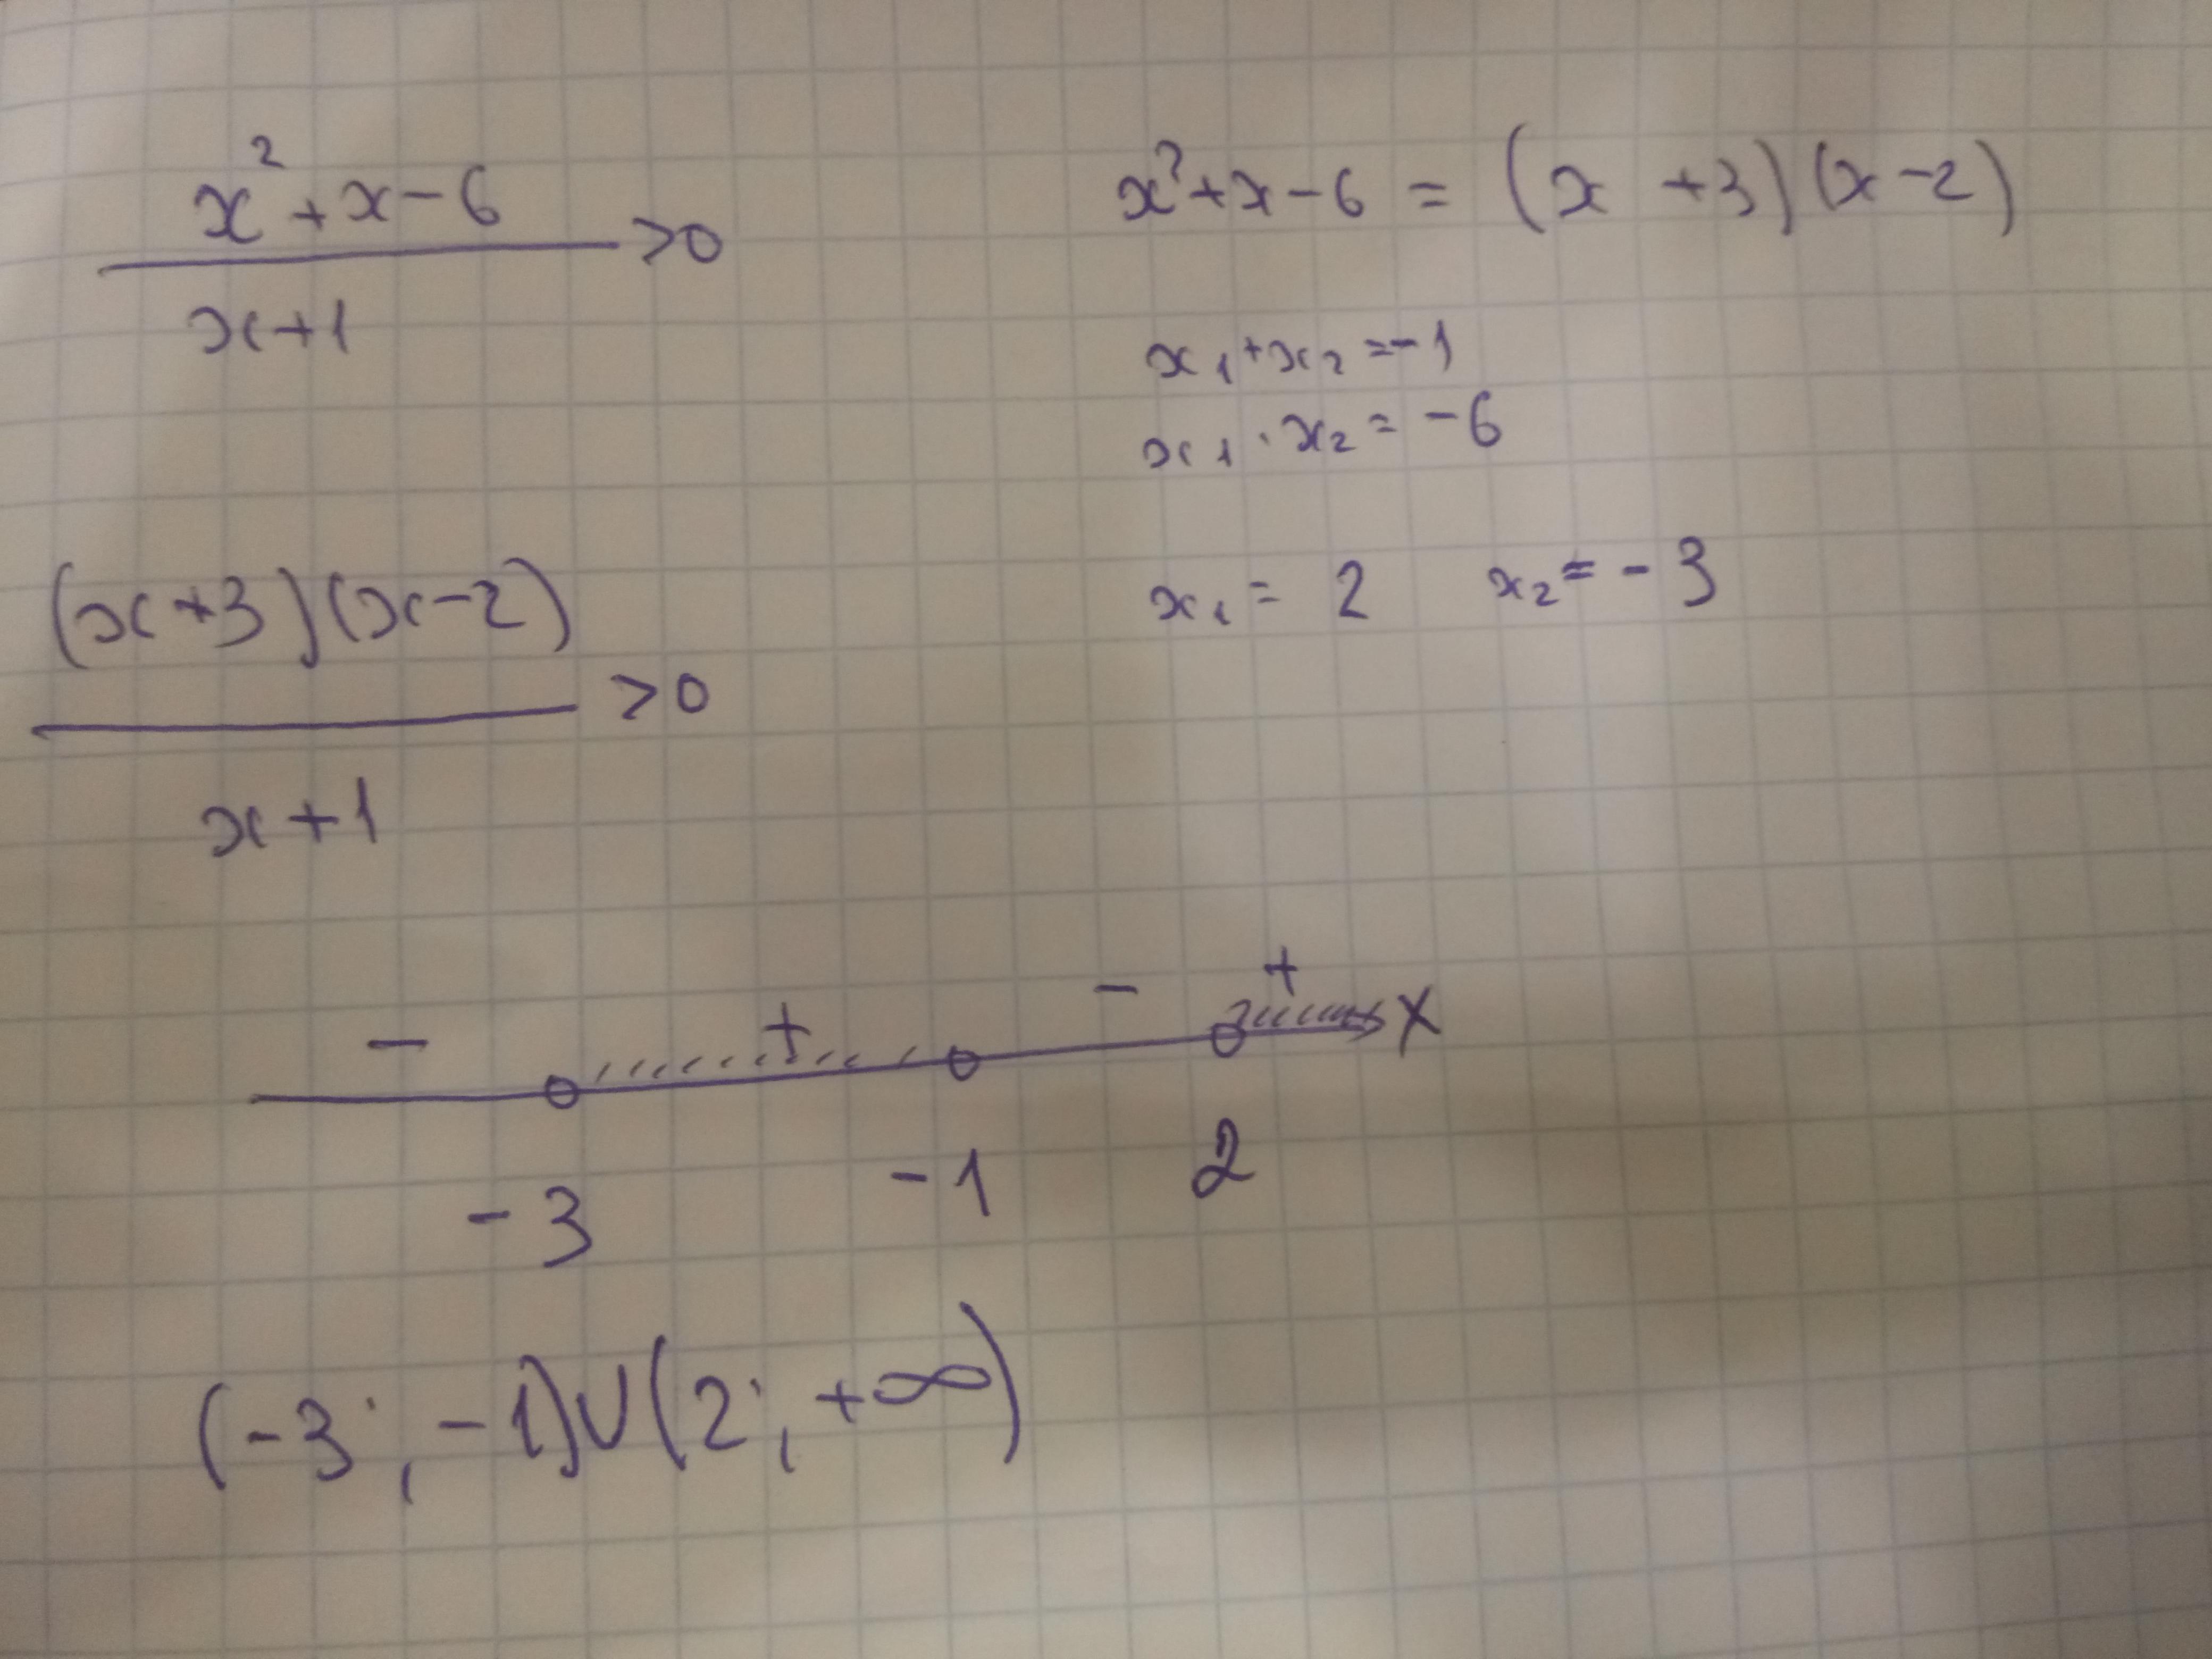 x² + x - 6
───────── > 0
x + 1
x² + x - 6 = (x + 3)(x - 2)
x₁ + x₂ = -1
x₁ · x₂ = -6
x₁ = 2 x₂ = -3
(x + 3)(x - 2)
───────── > 0
x + 1
- + - + x
-3 -1 2
(-3; -1) ∪ (2; +∞)